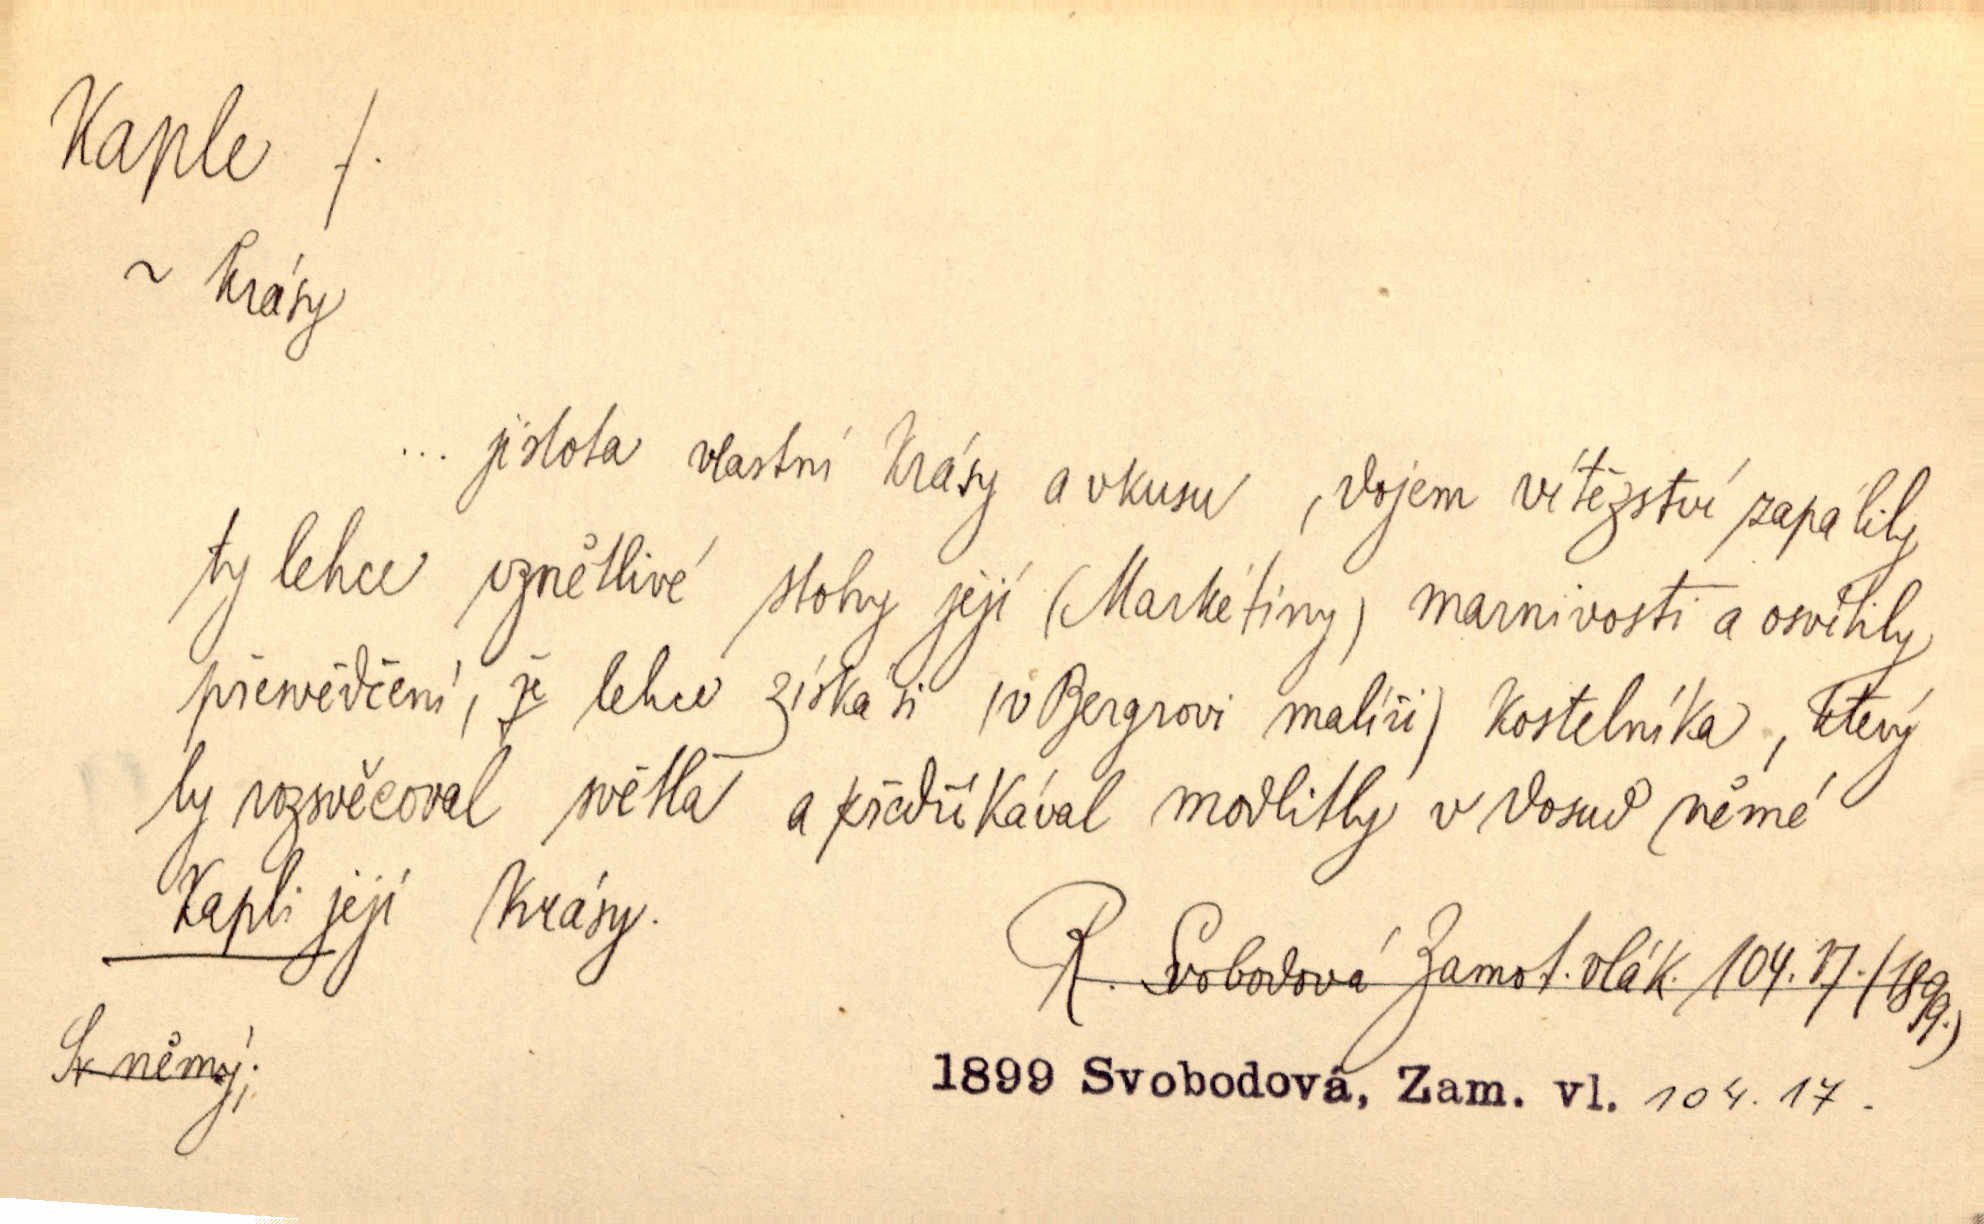 Kaple f.
~ krásy
... jistota vlastní krásy a vkusu, dojem vítězství zapálily
ty lehce vznětlivé stohy její (Markétiny) marnivosti a osvítily
přesvědčení, že lehce získá si (v Bergrovi malíři) kostelníka, který
by rozsvěcoval světla a předříkával modlitby v dosud němé
kapli její krásy.
R. Svobodová Zamot. vlák. 104. 17. (1899.)
němý;
1899 Svobodová, Zam. vl. 104. 17.